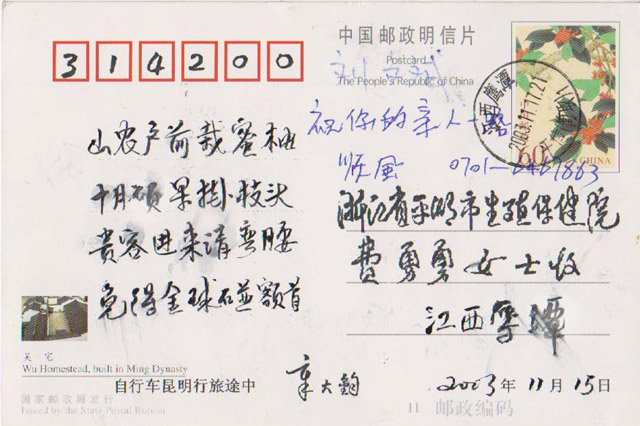 中国邮政明信片
Postcard
The People's Republic of China
314200
江西鹰潭
2003.11.17.21
60
CHINA
祝你的亲人一路
顺风 0701-6467863
山农户前栽蜜柚
十月硕果掛枝头
贵客进来请弯腰
免得金球碰额首
浙江省平湖市生殖保健院
费勇勇女士收
江西鹰潭
吴宅
Wu Homestead, built in Ming Dynasty
自行车昆明行旅途中
章大钧 2003年11月15日
国家邮政局发行
Issued by the State Postal Bureau
11 邮政编码